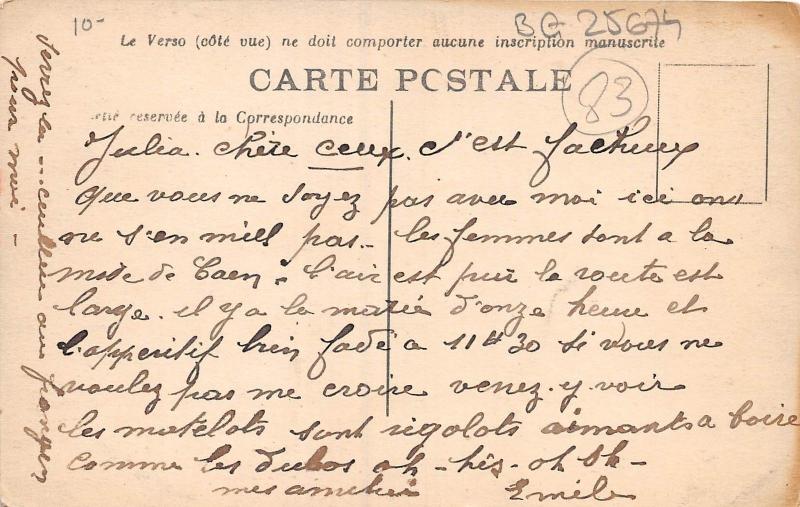 10-
BG 25674
Le Verso (côté vue) ne doit comporter aucune inscription manuscrite
CARTE POSTALE
83
réservée à la Correspondance
Julia. Chère ceux. c'est facheux
que vous ne soyez pas avec moi ici on
ne s'en miel pas - les femmes sont a la
mode de Caen. l'air est pur la route est
large. il y a la d'onze heure et
l'apperitif bien fadé a 11H30 si vous ne
voulez pas me croire venez. y. voir
les matelots sont rigolots aimants a boire
comme les oh - his - oh
mes Emile
Serrez la
pour moi -